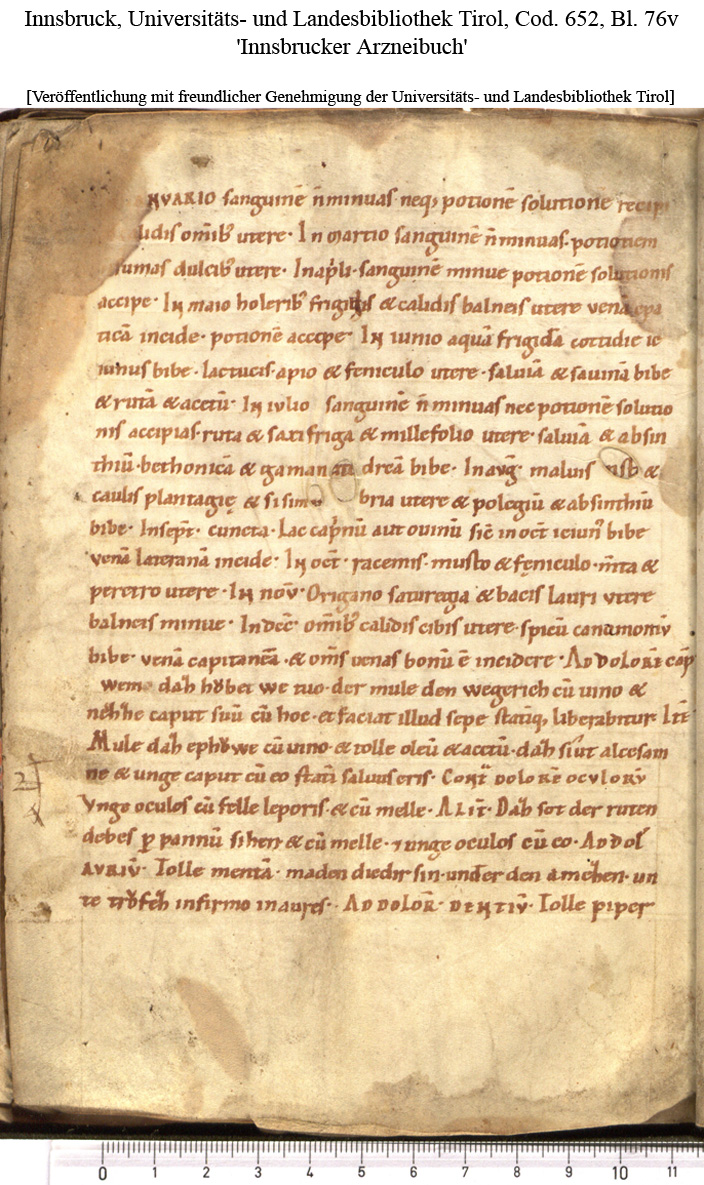 Innsbruck, Universitäts- und Landesbibliothek Tirol, Cod. 652, Bl. 76v
'Innsbrucker Arzneibuch'
[Veröffentlichung mit freundlicher Genehmigung der Universitäts- und Landesbibliothek Tirol]
NVARIO sanguinē n̄ minuas· neq; potionē solutionē
omīb; utere· In martio sanguinē n̄ minuas· potionem
sumas dulcib; utere· In ap̄li· sanguinē minue potionē solutionis
accipe· In maio holerib; frigidis & calidis balneis utere venā
ticā incide· potionē accipe· In iunio aquā frigidā cottidie ie
iunus bibe· lactucis· apio & feniculo utere· saluiā & sauinā bibe
& rutā & acetū· In ivlio sanguinē n̄ minuas nec potionē solutio
nis accipias· ruta & saxifriga & millefolio utere· saluiā & absin
thiū· bethonicā & gamandreā bibe· In avḡ· maluis &
caulis plantagię & sisimbria utere & polegiū & absinthiū
bibe· In sep̄t· cuncta· Lac cap̄nū aut ouinū sic̄ in oct̄ ieiun̄ bibe
venā lateranā incide· In oct̄· racemis· musto & feniculo· m̄ta &
peretro utere· In nōv· Origano satureia & bacis lauri vtere
balneis minue· In dec̄· omīb; calidis cibis utere· spicū canamomū
bibe· venā capitaneā· & om̄s uenas bonū ē incidere· AD DOLORĒ cap̄
wem daz hǒbet we tuo· der mule den wegerich cū uino &
caput suū cū hoc· et faciat illud sepe statiq; liberabitur· Itē
Mule daz ephǒwe cū uino· & tolle oleū & acetū· daz alcesam
ne & unge caput cū eo stati saluus eris· Cont̄ DOLORĒ OCVLORV̄
Vnge oculos cū felle leporis· & cū melle· ALIT̄· Daz sot der ruten
debes p pannū sihen & cū melle· ⁊ unge oculos cū eo· AD DOL̄
AVRIV̄· Tolle mentā· maden diedir sin· under den ameizen· un
te trǒfez infirmo in aures· AD DOLOR̄· DENTIV̄· Tolle piper
0 1 2 3 4 5 6 7 8 9 10 11